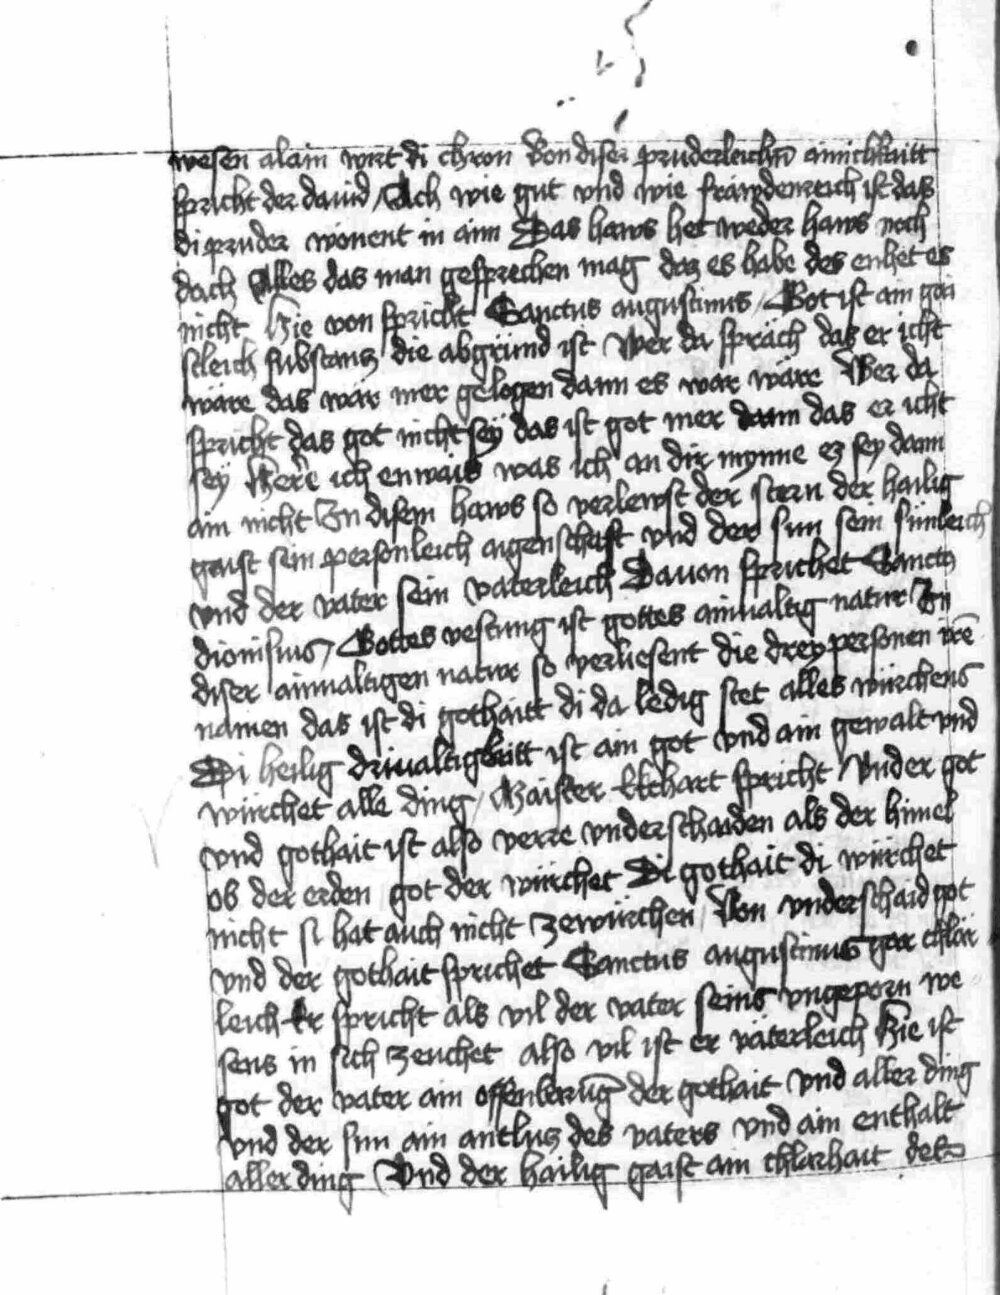 wesen alain wirt di chron Von diser pruderleichñ ainichkaitt
spricht der dauid / Ach wie gut vnd wie fräwdenreich ist das
di pruder wonent in ain Das haws het weder haws noch
dach Alles das man gesprechen mag daz es habe des enhet es
nicht Hie von spricht Sanctus augustinus / Got ist ain gai
stleich substantz die abgrund ist Wer da spräch daz er icht
wäre das wär mer gelogen dann es war wäre Wer da
spricht das got nicht sey das ist got mer dann das er icht
sey Herre ich enwais was ich an dir mynne ez sey dann
ain nicht In disem haws so verlewst der stern der hailig
gaist sein persönleich aigenschaft vnd der sun sein sünleich
vnd der vater sein vaterleich Dauon sprichet Sanctus
dionisius / Gottes vestung ist gottes ainualtig natur In
diser ainualtigen natur so verliesent die drey personen irē
namen das ist di gothaitt di da ledig stet alles würchens
Di heilig driualtigkaitt ist ain got vnd ain gewalt vnd
würchet alle ding / Maister Ekchart spricht Vnder got
vnd gothait ist also verre vnderschaiden als der himel
ob der erden got der würchet Di gothait di würchet
nicht si hat auch nicht zewürchen / Von vnderschaid got
vnd der gothait sprichet Sanctus augustinus gar chlär
leich Er spricht als vil der vater seins vngeporn we
sens in sich zeuchet also vil ist er väterleich Hie ist
got der vater ain offenbarūg der gothait vnd aller ding
vnd der sun ain antlutz des vaters vnd ain enthalt
aller ding Vnd der hailig gaist ain chlarhait